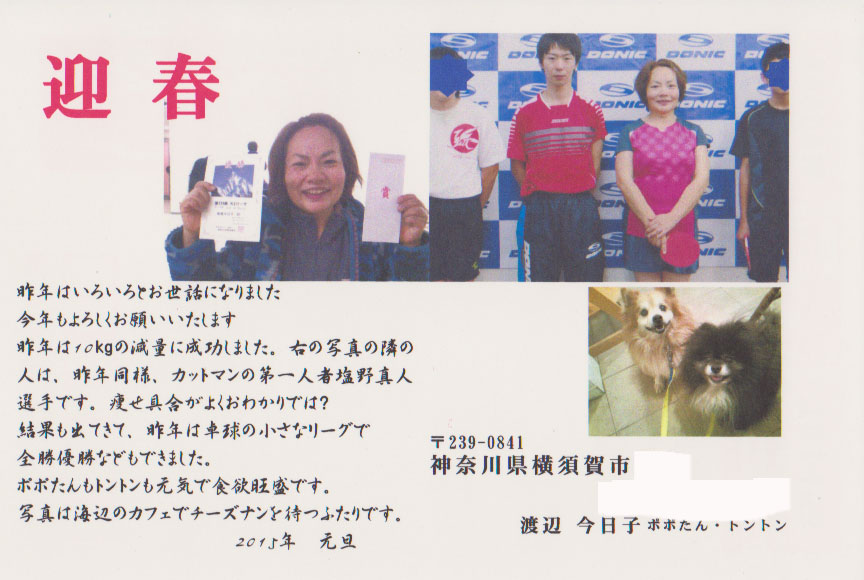 迎春
賞
DONIC
DONIC
DONIC
DONIC
昨年はいろいろとお世話になりました
今年もよろしくお願いいたします
昨年は10kgの減量に成功しました。右の写真の隣の
人は、昨年同様、カットマンの第一人者塩野真人
選手です。痩せ具合がよくおわかりでは？
結果も出てきて、昨年は卓球の小さなリーグで
全勝優勝などもできました。
ポポたんもトントンも元気で食欲旺盛です。
写真は海辺のカフェでチーズナンを待つふたりです。
2015年 元旦
〒239-0841
神奈川県横須賀市
渡辺 今日子 ポポたん・トントン